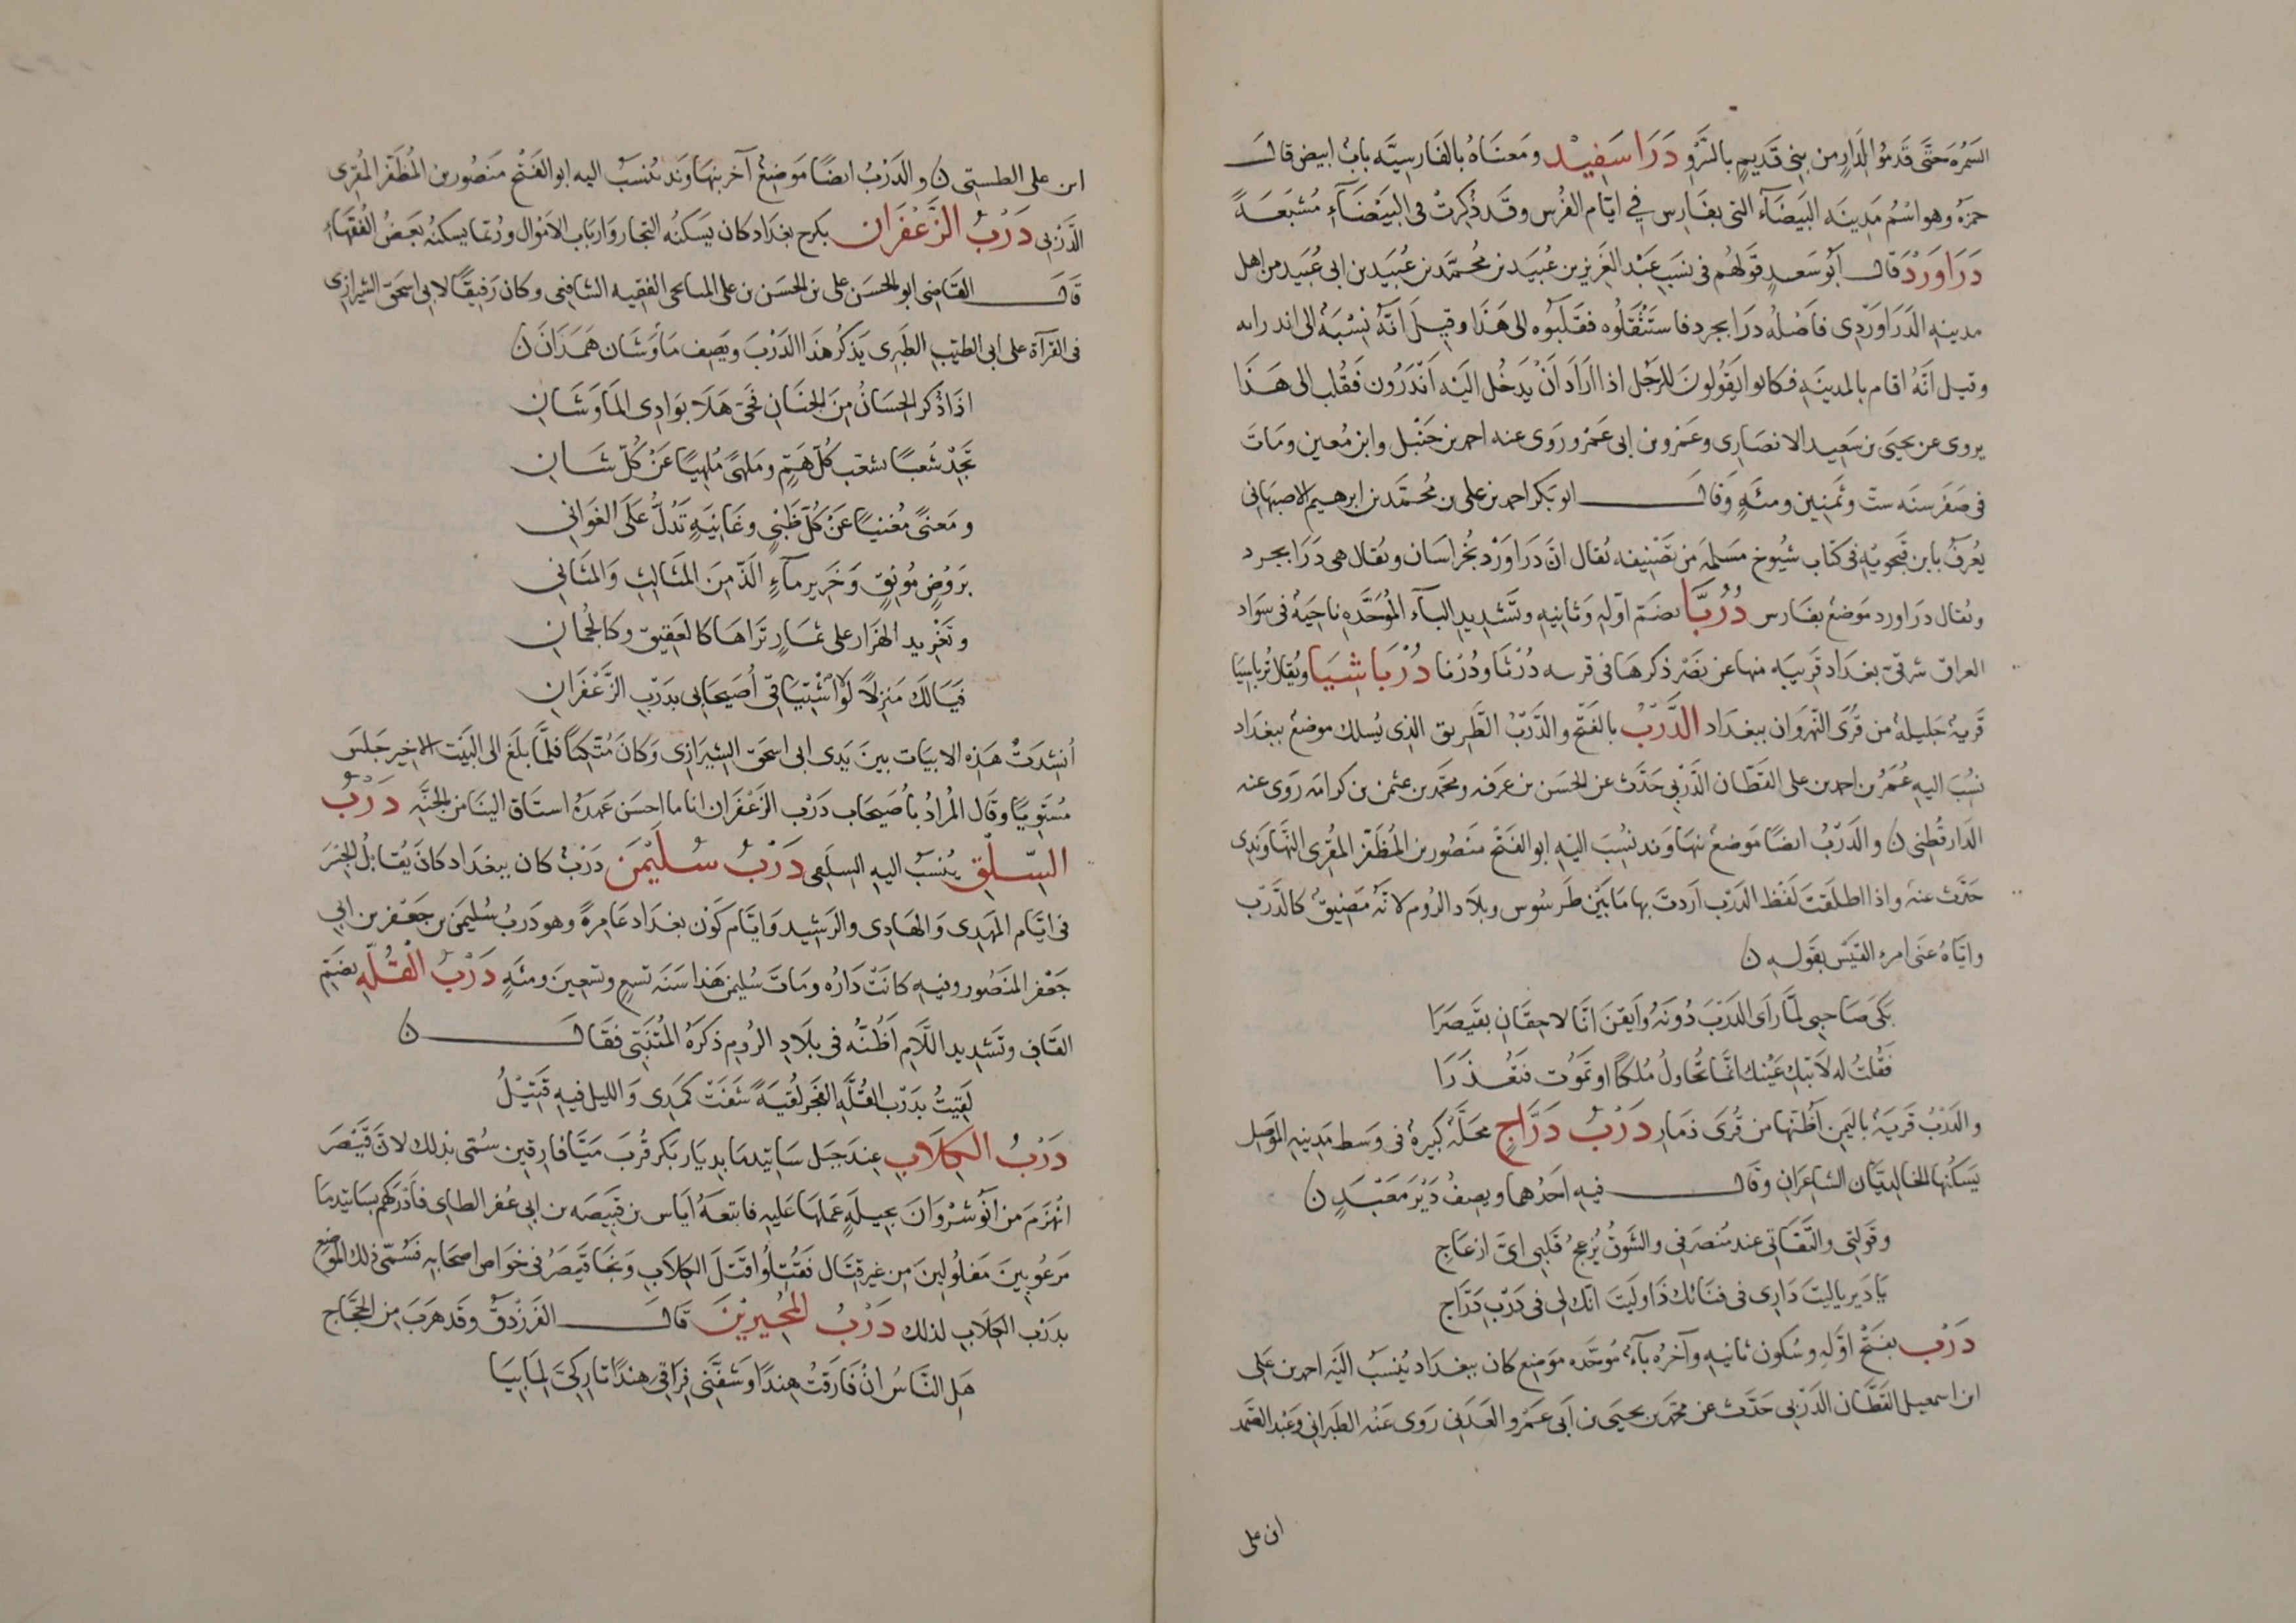 السمرة حتى قدموا الدار من بني قديم بالسرو دَرَاسَفِيْد ومعناه بالفارسيّه باب ابيض قال
حمزة وهو اسم مدينه البيضآء التي بفارس في ايّام الفرس وقد ذُكِرتْ في البيضآءِ مُشبَعةً
دَرَاوَرْد قال ابو سعدٍ قولهم في نسب عبد العزيز بن عُبيد بن محمّد بن عُبيد بن ابي عُبيد من اهل
مدينه الدراوردي فاصله درابجرد فاستثقلوه فقلبوه الى هذا وقيل انّه نِسْبَة الى اندرابه
وقيل انّه اقام بالمدينه فكانوا يقولون للرجل اذا اراد ان يدخل اليه اندرون فقُلب الى هذا
يروى عن يحيى بن سعيد الانصاري وعمرو بن ابي عمرو روى عنه احمد بن حنبل وابن معين ومات
في صفر سنه ستّ وثمنين ومئه وقال ابو بكر احمد بن علي بن محمّد بن ابرهيم الاصبهاني
يعرف بابن فنجويه في كتاب شيوخ مسلم من تصنيفه يُقال انّ دَرَاوَرْد بخراسان ويُقال هي درابجرد
ويُقال دراورد موضع بفارس دُرُبَّا بضم اوّله وثانيه وتشديد البآء الموحّده ناحيه في سواد
العراق شرقي بغداد قريبه منها عن نصر ذكرها في قريه دُرْتَا ودُرْنا دُرْبَاشِيَا ويُقال تُرباسيَا
قرية جليلة من قُرى النهروان ببغداد الدَّرْبُ بالفتح والدَّرْبُ الطريق الذي يُسلك موضع ببغداد
نسِب اليه عُمر بن احمد بن علي القطّان الدربي حدّث عن الحسن بن عرفه ومحمّد بن عثمن بن كرامه روى عنه
الدارقطني ن والدربُ ايضًا موضع بنهاوند نُسِبَ اليه ابو الفتح منصور بن المُظفّر المُقرى النهاوندى
حدّث عنه واذا اطلقتَ لَفْظ الدرب اردتَ بها ما بين طرسُوس وبلاد الروم لانّه مضيق كالدرب
وايّاه عنى امرء القيس بقوله ن
بَكَى صَاحِبي لمّا رَأى الدَرْبَ دُونَهُ وَأيقنَ انّا لاحِقانِ بقَيصَرَا
فقُلتُ له لا تبكِ عَيْنك انّما تُحَاوِلُ مُلكًا او تَمُوت فتُعْذَرَا
والدَرْبُ قَرية باليمن اظنها من قُرى ذمار دَرْبُ دَرَّاجٍ محلّة كبيرة في وسط مدينه الموصل
يسكنها الخالديّان الشاعران وقال فيه احدهما ويصِفُ دَيْرَ مَعْبَدٍ ن
وقولتي والتقاتي عند مُنصَرفي والشوقُ يُزعِجُ قلبي ايّ ازعَاجِ
يَا دَير يا ليتَ دَارِى في فنائك ذا او ليتَ انّك لي في دَرْب دَرّاجِ
دَرْب بفتح اوّله وسُكون ثانيه وآخره بآءٌ موحّده موضع كان ببغداد يُنسَبُ اليه احمد بن علي
ابن اسمعيل القطّان الدربي حدّث عن محمّد بن يحيى بن ابي عمرو العدني روى عنه الطبراني وعبد الصمد
ابن على
ابن على الطستى ن والدَرْبُ ايضًا موضع آخر بنهاوند نُسب اليه ابو الفتح منصور بن المُظفّر المُقرى
الدربى دَرْبُ الزَّعْفَرَان بكرخ بغداد كان يسكنه التجار وارباب الاموال وربّما يسكنه بعض الفقهاء
قال القاضى ابو الحسن على بن الحسن بن على الميانجى الفقيه الشافعى وكان رفيقًا لابى اسحق الشيرازى
فى القرآة على ابى الطيب الطبرى يذكر هذا الدرب ويصِف ماوَشان هَمَذَان ن
اذا ذُكر الحِسَانُ مِنَ الجِنَانِ فحَىَّ هَلَا بوَادِى المَاوَشَانِ
تجِدْ شِعبًا يشعّب كُلّ هَمٍّ ومَلهىً مُلهِيًا عَنْ كُلّ شَانِ
ومَغنىً مُغنيًا عَنْ كُلّ ظَبْىٍ وغَانِيَةٍ تَدُلّ عَلَى الغَوَانِى
برَوْضٍ مُونِقٍ وَخَرِير مآءٍ الَذّ مِنَ المَثَالِثِ وَالمَثَانِى
وتغْرِيد الهَزَار على ثِمارٍ تَرَاهَا كالعَقِيقِ وكالجُمَانِ
فيَا لَكَ مَنزِلاً لَولا اشْتِيَاقِى أُصَيحَابِى بدَرْبِ الزَّعْفَرَانِ
أُنشِدَتْ هذه الابيات بينَ يَدَى ابى اسحق الشيرازى وَكانَ مُتّكِئًا فلمَّا بلَغ الى البَيْت الاخير جلسَ
مُستويًا وقال المُرادُ باُصَيحاب درْب الزعْفران انا ما احسن عهده اشتاق الينا من الجنّه دَرْبُ
السِّلْقِ يُنسَبُ اليه السلقى دَرْبُ سُلَيْمٰنَ دَرْبٌ كان ببغداد كان يُقابل الجسرَ
فى ايّام المهدى والهادى والرشيد وايّام كَوْن بغداد عامرةً وهو درب سُليمن بن جعفر بن ابى
جعفر المنصور وفيه كانت دَارُه وماتَ سُليمن هذا سَنَه تسعٍ وتسعين ومئةٍ دَرْبُ الْقُلَّهِ بضمّ
القافِ وتشديد اللام اظُنّه فى بلادِ الروم ذكَرَهُ المُتنبّى فقال ن
لقِيتُ بدَرْب القُلّهِ الفجرَ لُقيَةً شفَتْ كَمَدِى وَالليل فيهِ قَتِيْلُ
دَرْبُ الكِلَابِ عند جَبَل سَاتيدما بديار بكر قُربَ ميّافارقين سُمّى بذلك لانّ قيصَر
انهزم من انوشروان بحيلةٍ عملها عليه فاتبعَهُ اياس بن قبيصه بن ابى عُفر الطاى فادركهم بساتيدما
مَرعُوبينَ مَفلُولينَ مِن غير قتَال فقُتِلُوا قتْلَ الكِلَابِ ونجَا قيصَر فى خواص اصحابه فسُمّى ذلك الموضع
بدرْب الكلاب لذلك دَرْبُ المُجِيرِيْنَ قال الفرزدق وقد هَربَ مِن الحجّاج
هَلِ النَّاسُ انْ فَارَقْتُ هِندًا وَشَفَّنِى فِرَاقِى هِندًا تَارِكِىَّ لِمَا بِيَا